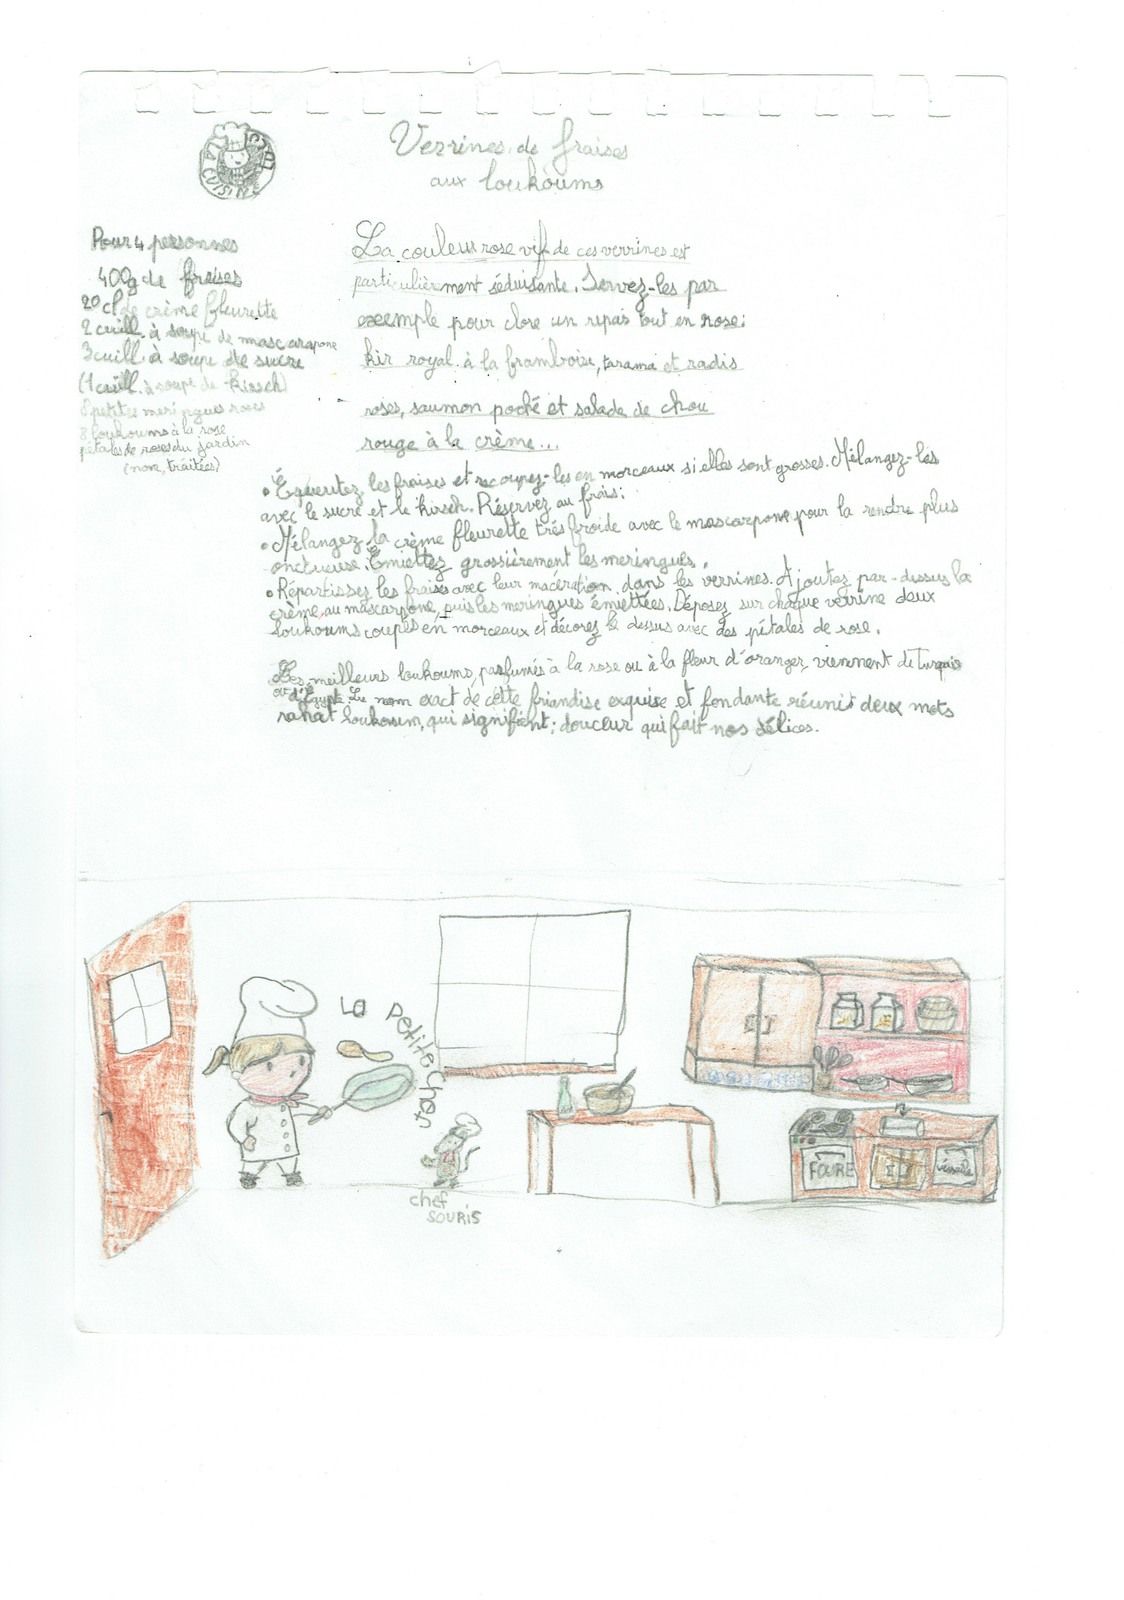 LA CUISINE
Verrines de fraises
aux loukoums
Pour 4 personnes
400g de fraises
20 cl de crème fleurette
2 cuill. à soupe de mascarapone
3 cuill. à soupe de sucre
(1 cuill. à soupe de kirsch)
8 petites meringues roses
8 loukoums à la rose
pétales de roses du jardin
(non, traitées)
La couleur rose vif de ces verrines est
particulièrement séduisante. Servez-les par
exemple pour clore un repas tout en rose:
kir royal à la framboise, tarama et radis
roses, saumon poché et salade de chou
rouge à la crème...
• Équeutez les fraises et recoupez-les en morceaux si elles sont grosses. Mélangez-les
avec le sucre et le kirsch. Réservez au frais.
• Mélangez la crème fleurette très froide avec le mascarpone pour la rendre plus
onctueuse. Émiettez grossièrement les meringues.
• Répartissez les fraises avec leur macération dans les verrines. Ajoutez par-dessus la
crème au mascarpone, puis les meringues émiettées. Déposez sur chaque verrine deux
loukoums coupés en morceaux et décorez le dessus avec des pétales de rose.
Les meilleurs loukoums, parfumés à la rose ou à la fleur d'oranger, viennent de Turquie
ou d'Égypte. Le nom exact de cette friandise exquise et fondante réunit deux mots
rahat loukoum, qui signifient: douceur qui fait nos délices.
La Petite Chef
chef
SOURIS
FOURE
vaisselle